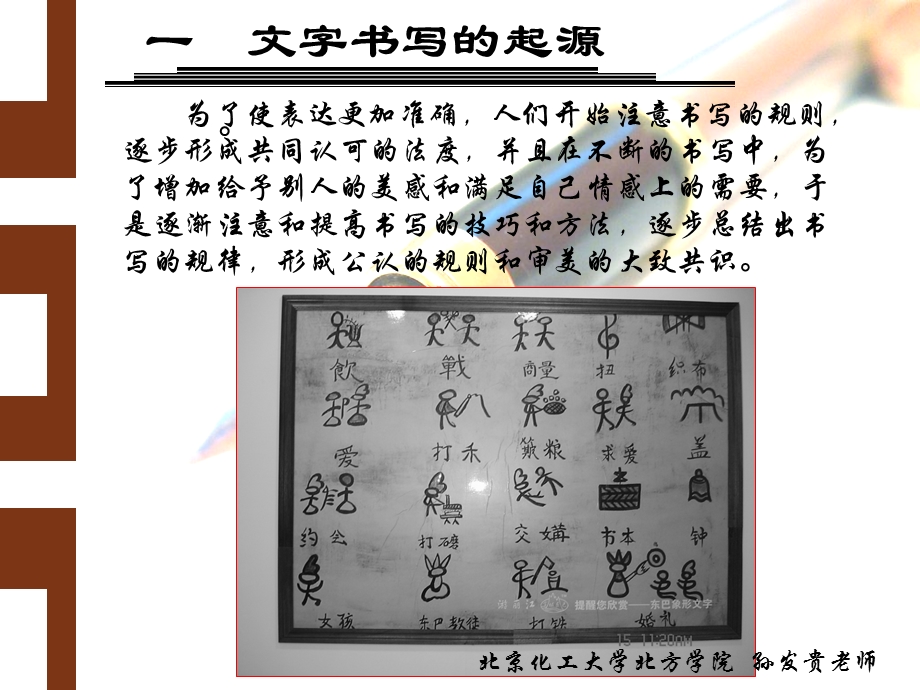 一 文字书写的起源
为了使表达更加准确，人们开始注意书写的规则，
。
逐步形成共同认可的法度，并且在不断的书写中，为
了增加给予别人的美感和满足自己情感上的需要，于
是逐渐注意和提高书写的技巧和方法，逐步总结出书
写的规律，形成公认的规则和审美的大致共识。
飲 戰 商量 扭 织布
爱 打禾 粮 求爱 盖
约会 打 交媾 书本 钟
女孩 东巴教徒 打铁 婚礼
提醒您欣赏——东巴象形文字
15 11:20AM
北京化工大学北方学院 孙发贵老师